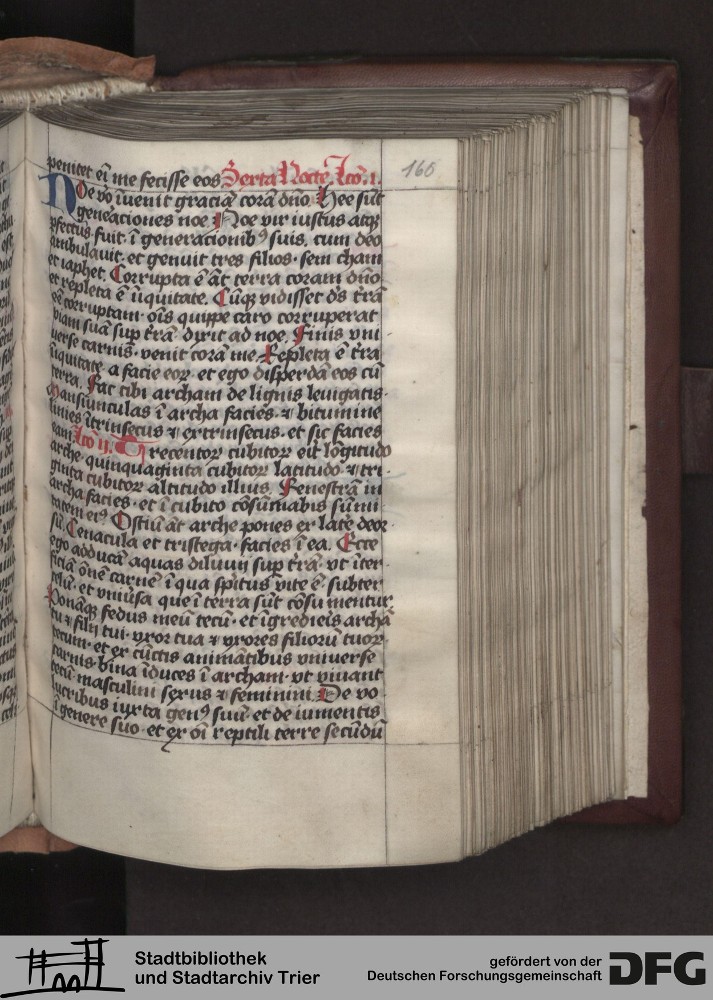 penitet eī me fecisse eos Sexta Nocte Lco. i.
160
Noe vo īuenit graciā corā dn̄o. Hee sūt
generaciones noe. Noe vir iustus atqꝫ
ꝑfectus fuit ī generacionibꝰ suis. cum deo
ambulauit. et genuit tres filios. sem cham
et iaphet. Corrupta ē āt terra coram dn̄o
et repleta ē īiquitate. Cūqꝫ vidisset dꝰs t̄rā
eē corruptam. oīs quippe caro corruperat
viam suā sup t̄rā. dixit ad noe. Finis vni
uerse carnis. venit corā me. Repleta ē t̄ra
īiquitate a facie eoꝝ. et ego disperdā eos cū
terra. Fac tibi archam de lignis leuigatis.
Mansiunculas ī archa facies. ⁊ bitumine
linies ītrinsecus ⁊ extrinsecus. et sic facies
eam Lco ii. Trecentoꝝ cubitoꝝ eīt lōgitudo
arche. quinquaginta cubitoꝝ latitudo ⁊ tri-
ginta cubitoꝝ altitudo illius. Fenestrā in
archa facies. et ī cubito cōsūmabis sūmi
tatem eiꝰ. Ostiū āt arche pones ex late deor
sū. Cenacula et tristega. facies ī ea. Ecce
ego adducā aquas diluuij sup t̄rā. vt īter-
ficiā ōnē carnē ī qua spiritus vite ē. subter
celū. et vniūsa que ī terra sūt cōsumentur.
Ponāqꝫ fedus meū tecū. et īgredieris archā
tu ⁊ filij tui. vxor tua ⁊ vxores filiorū tuoꝝ
tecum. et ex cūctis animātibus vniuerse
carnis. bina īduces ī archam. vt viuant
tecū. masculini sexus ⁊ feminini. De vo
lucribus iuxta genꝰ suū. et de iumentis
ī genere suo. et ex oī reptili terre secūdū
Stadtbibliothek
und Stadtarchiv Trier
gefördert von der
Deutschen Forschungsgemeinschaft
DFG